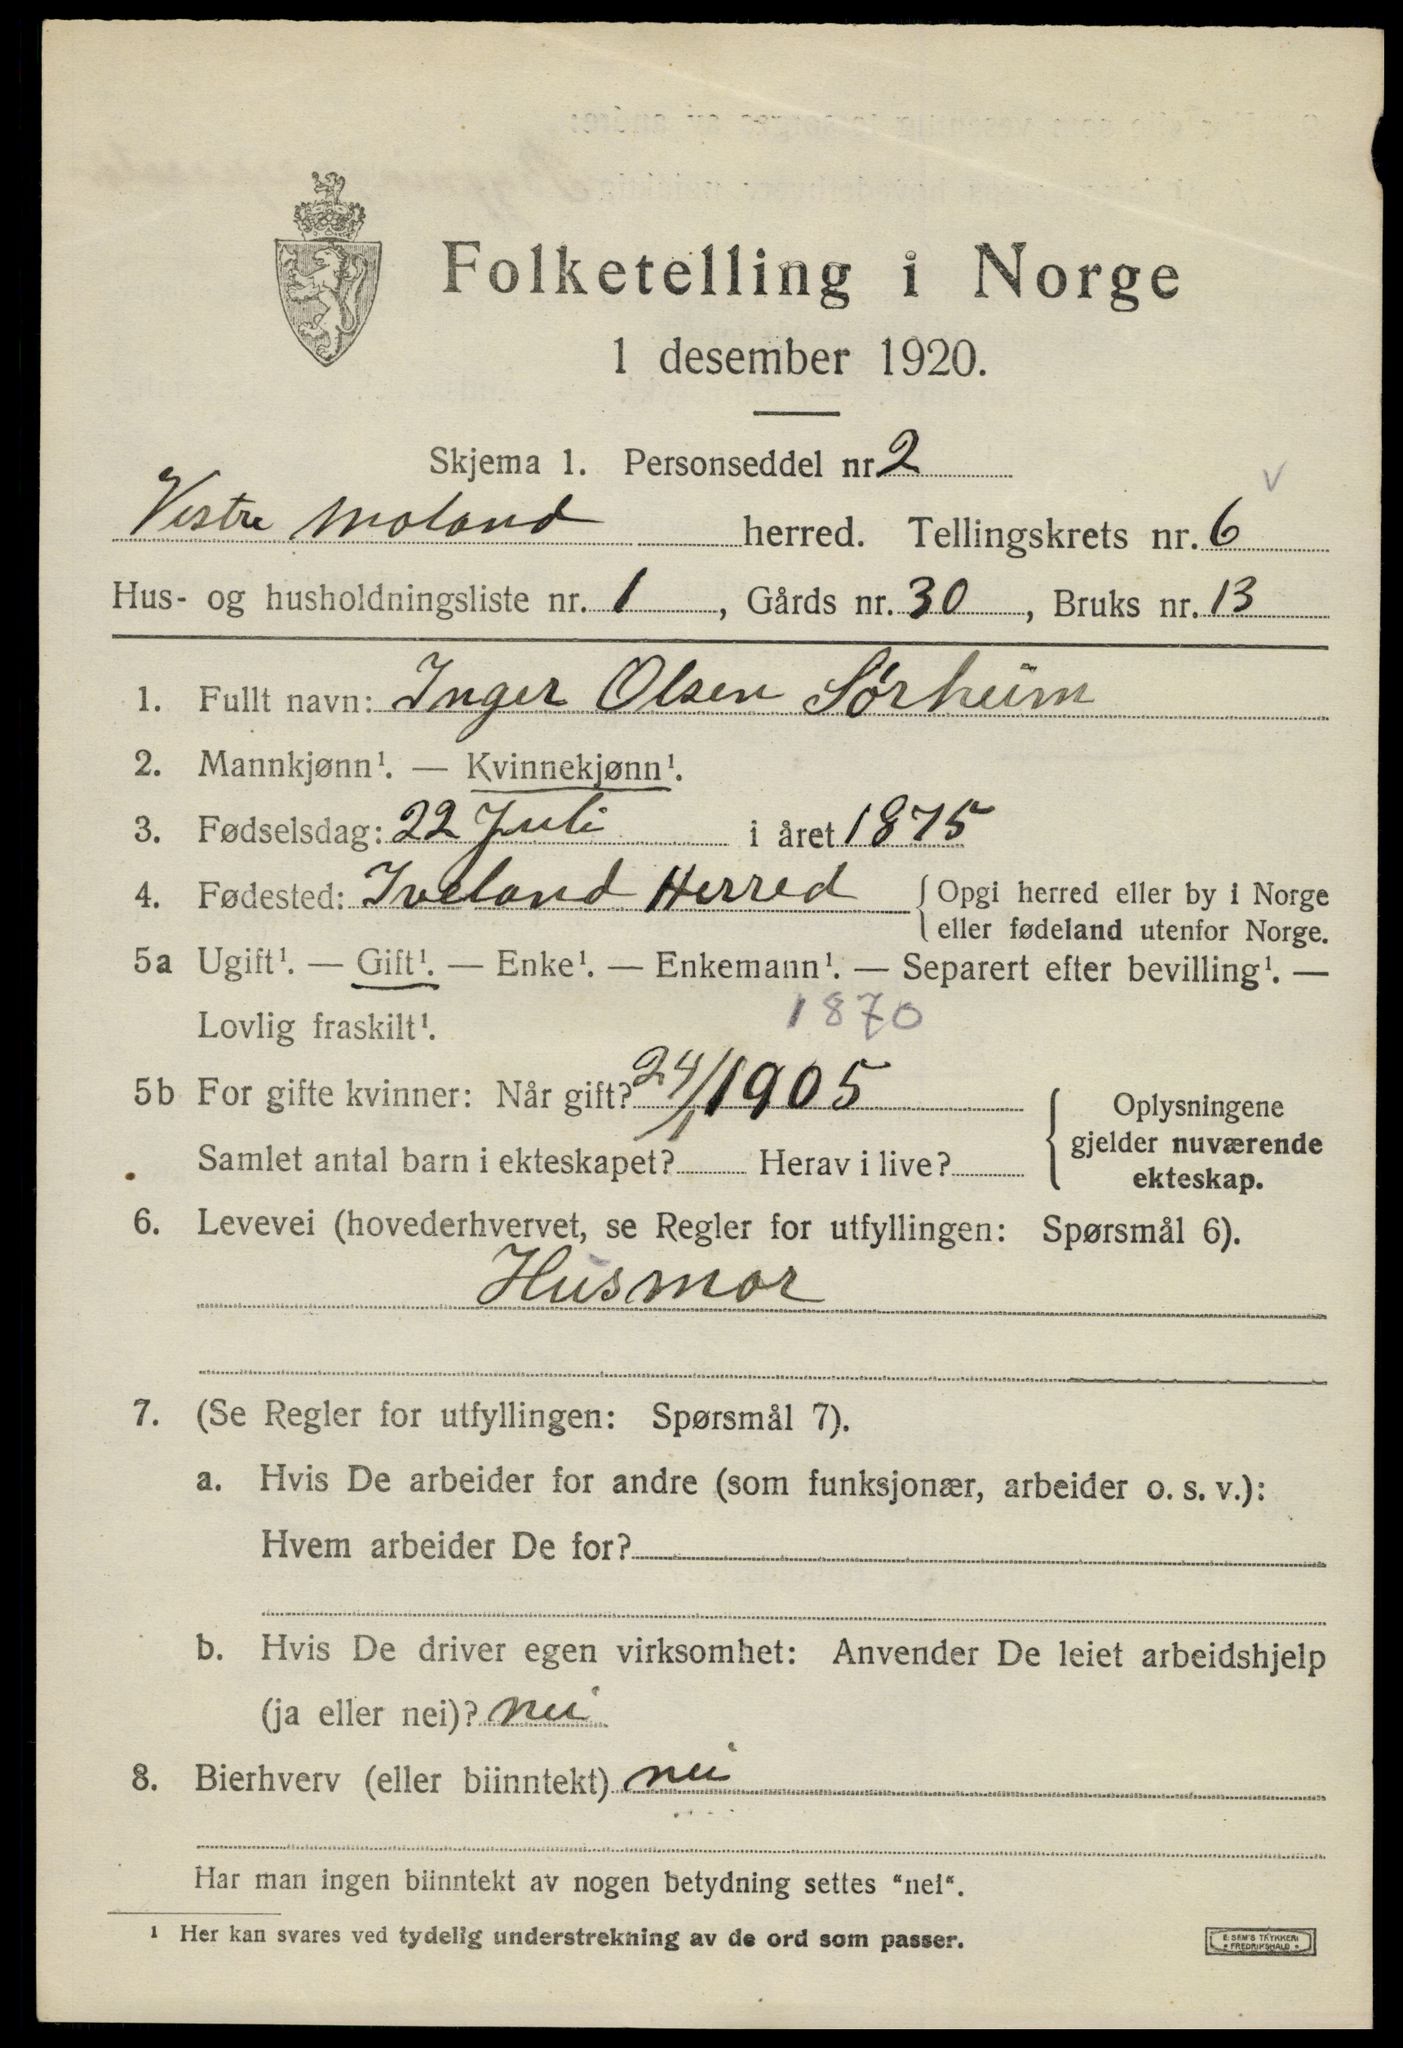 Folketelling i Norge
1 desember 1920.
Skjema 1. Personseddel nr. 2
v
Vestre Moland herred. Tellingskrets nr. 6
Hus- og husholdningsliste nr. 1, Gårds nr. 30, Bruks nr. 13
1. Fullt navn: Inger Olsen Sørheim
2. Mannkjønn¹. — Kvinnekjønn¹.
3. Fødselsdag: 22 Juli i året 1875
4. Fødested: Iveland Herred { Opgi herred eller by i Norge
eller fødeland utenfor Norge.
5a Ugift¹. — Gift¹. — Enke¹. — Enkemann¹. — Separert efter bevilling¹. —
Lovlig fraskilt¹.
1870
5b For gifte kvinner: Når gift? 24/1 1905
Samlet antal barn i ekteskapet? Herav i live?
{ Oplysningene
gjelder nuværende
ekteskap.
6. Levevei (hovederhvervet, se Regler for utfyllingen: Spørsmål 6).
Husmor
7. (Se Regler for utfyllingen: Spørsmål 7).
a. Hvis De arbeider for andre (som funksjonær, arbeider o. s. v.):
Hvem arbeider De for?
b. Hvis De driver egen virksomhet: Anvender De leiet arbeidshjelp
(ja eller nei)? nei
8. Bierhverv (eller biinntekt) nei
Har man ingen biinntekt av nogen betydning settes "nei".
¹ Her kan svares ved tydelig understrekning av de ord som passer.
E. SEM'S TRYKKERI
• FREDRIKSHALD •